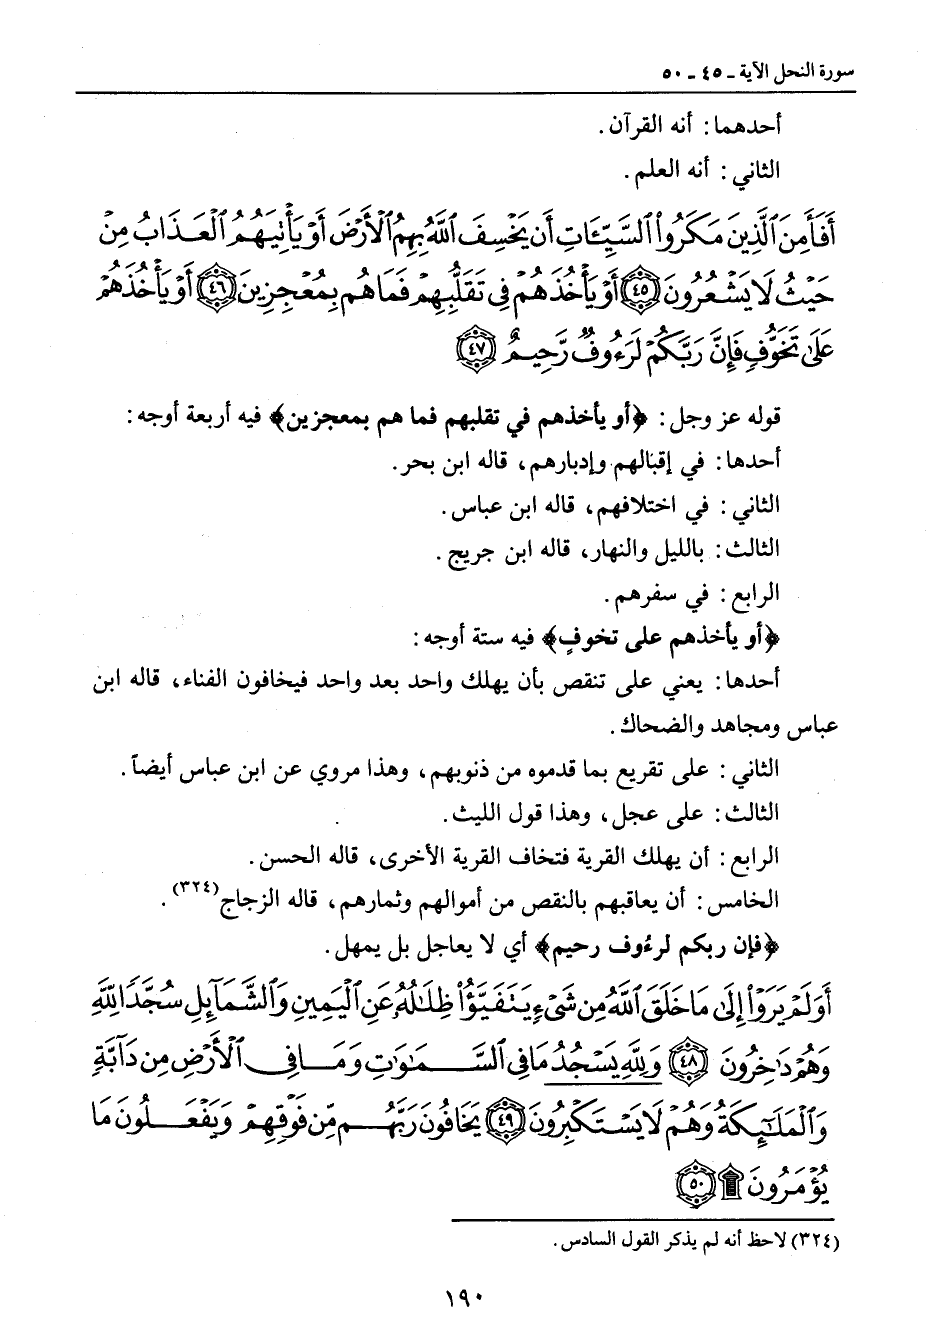 سورة النحل الآية ـ ٤٥ ـ ٥٠
أحدهما: أنه القرآن.
الثاني: أنه العلم.
أَفَأَمِنَ الَّذِينَ مَكَرُوا۟ السَّيِّئَاتِ أَن يَخْسِفَ اللَّهُ بِهِمُ الْأَرْضَ أَوْ يَأْتِيَهُمُ الْعَذَابُ مِنْ
حَيْثُ لَا يَشْعُرُونَ ﴿٤٥﴾ أَوْ يَأْخُذَهُمْ فِى تَقَلُّبِهِمْ فَمَا هُم بِمُعْجِزِينَ ﴿٤٦﴾ أَوْ يَأْخُذَهُمْ
عَلَىٰ تَخَوُّفٍ فَإِنَّ رَبَّكُمْ لَرَءُوفٌ رَّحِيمٌ ﴿٤٧﴾
قوله عز وجل: ﴿أو يأخذهم في تقلبهم فما هم بمعجزين﴾ فيه أربعة أوجه:
أحدها: في إقبالهم وإدبارهم، قاله ابن بحر.
الثاني: في اختلافهم، قاله ابن عباس.
الثالث: بالليل والنهار، قاله ابن جريج.
الرابع: في سفرهم.
﴿أو يأخذهم على تخوفٍ﴾ فيه ستة أوجه:
أحدها: يعني على تنقص بأن يهلك واحد بعد واحد فيخافون الفناء، قاله ابن
عباس ومجاهد والضحاك.
الثاني: على تقريع بما قدموه من ذنوبهم، وهذا مروي عن ابن عباس أيضاً.
الثالث: على عجل، وهذا قول الليث.
الرابع: أن يهلك القرية فتخاف القرية الأخرى، قاله الحسن.
الخامس: أن يعاقبهم بالنقص من أموالهم وثمارهم، قاله الزجاج(٣٢٤).
﴿فإن ربكم لرءُوف رحيم﴾ أي لا يعاجل بل يمهل.
أَوَلَمْ يَرَوْا۟ إِلَىٰ مَا خَلَقَ اللَّهُ مِن شَىْءٍ يَتَفَيَّؤُا۟ ظِلَٰلُهُ عَنِ الْيَمِينِ وَالشَّمَآئِلِ سُجَّدًا لِّلَّهِ
وَهُمْ دَٰخِرُونَ ﴿٤٨﴾ وَلِلَّهِ يَسْجُدُ مَا فِى السَّمَٰوَٰتِ وَمَا فِى الْأَرْضِ مِن دَآبَّةٍ
وَالْمَلَٰٓئِكَةُ وَهُمْ لَا يَسْتَكْبِرُونَ ﴿٤٩﴾ يَخَافُونَ رَبَّهُم مِّن فَوْقِهِمْ وَيَفْعَلُونَ مَا
يُؤْمَرُونَ ۩ ﴿٥٠﴾
(٣٢٤) لاحظ أنه لم يذكر القول السادس.
١٩٠